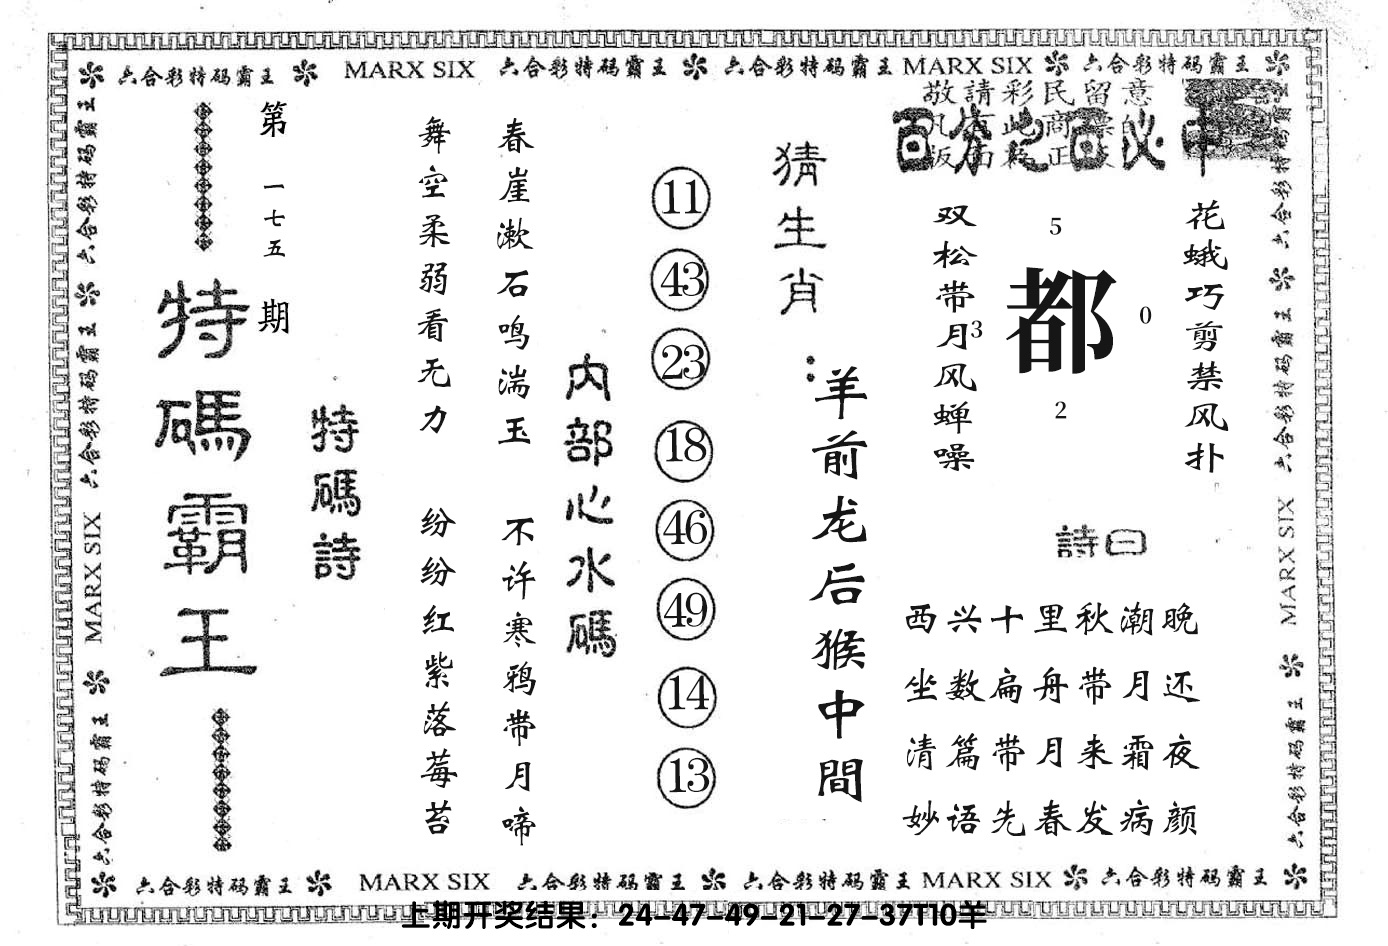 六合彩特码霸王 MARX SIX 六合彩特码霸王 六合彩特码霸王 MARX SIX 六合彩特码霸王
敬請彩民留意
百分之百必中
花蛾巧剪禁风扑
双松带月风蝉噪
5
都
3
0
2
詩曰
西兴十里秋潮晚
坐数扁舟带月还
清篇带月来霜夜
妙语先春发病颜
猜生肖：
羊前龙后猴中間
11
43
23
18
46
49
14
13
内部心水碼
春崖漱石鸣湍玉
不许寒鸦带月啼
舞空柔弱看无力
纷纷红紫落莓苔
特碼詩
第一七五期
特碼霸王
六合彩特码霸王 六合彩特码霸王 MARX SIX 六合彩特码霸王
六合彩特码霸王 六合彩特码霸王 MARX SIX 六合彩特码霸王
六合彩特码霸王 MARX SIX 六合彩特码霸王 六合彩特码霸王 MARX SIX 六合彩特码霸王
上期开奖结果：24-47-49-21-27-37T10羊